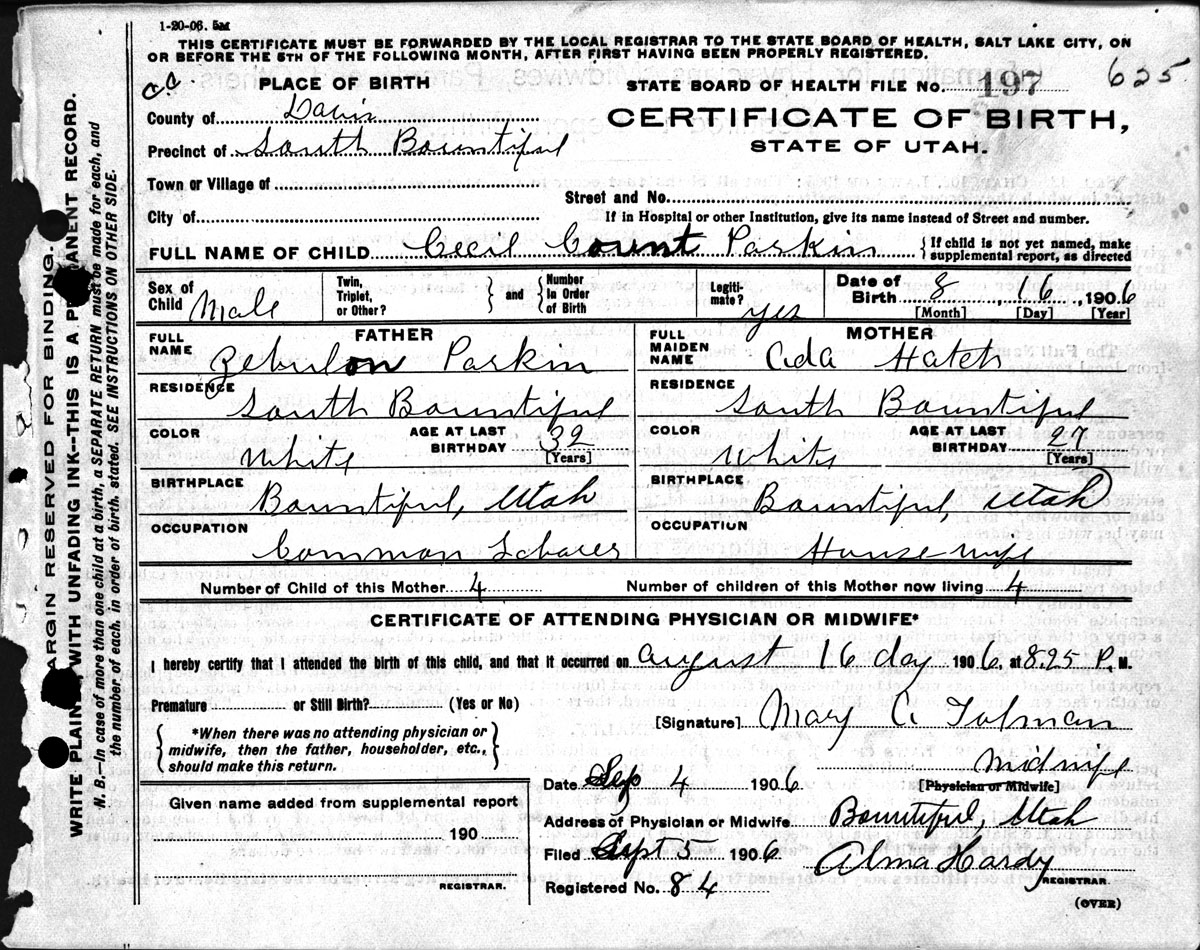 1-20-06. 5M
THIS CERTIFICATE MUST BE FORWARDED BY THE LOCAL REGISTRAR TO THE STATE BOARD OF HEALTH, SALT LAKE CITY, ON
OR BEFORE THE 5TH OF THE FOLLOWING MONTH, AFTER FIRST HAVING BEEN PROPERLY REGISTERED.
PLACE OF BIRTH
STATE BOARD OF HEALTH FILE NO. 197 625
County of Davis
CERTIFICATE OF BIRTH,
Precinct of South Bountiful
STATE OF UTAH.
Town or Village of
Street and No.
City of
If in Hospital or other Institution, give its name instead of Street and number.
FULL NAME OF CHILD Cecil Count Parkin { If child is not yet named, make
supplemental report, as directed
Sex of Child Male
Twin, Triplet, or Other? } and { Number in Order of Birth
Legitimate? yes
Date of Birth 8 16, 1906
[Month] [Day] [Year]
FATHER
FULL NAME Zebulon Parkin
MOTHER
FULL MAIDEN NAME Ada Hatch
RESIDENCE South Bountiful
RESIDENCE South Bountiful
COLOR White AGE AT LAST BIRTHDAY 32 [Years]
COLOR White AGE AT LAST BIRTHDAY 27 [Years]
BIRTHPLACE Bountiful, Utah
BIRTHPLACE Bountiful, Utah
OCCUPATION Common Laborer
OCCUPATION House wife
Number of Child of this Mother 4 Number of children of this Mother now living 4
CERTIFICATE OF ATTENDING PHYSICIAN OR MIDWIFE*
I hereby certify that I attended the birth of this child, and that it occurred on August 16 day 1906, at 8.25 P. M.
Premature or Still Birth? (Yes or No)
[Signature] Mary C. Tolman
{ *When there was no attending physician or
midwife, then the father, householder, etc.,
should make this return. }
Midwife
[Physician or Midwife]
Date Sep 4 1906
Given name added from supplemental report
190
REGISTRAR.
Address of Physician or Midwife Bountiful, Utah
Filed Sept 5 1906 Alma Hardy
REGISTRAR.
Registered No. 84
(OVER)
MARGIN RESERVED FOR BINDING.
WRITE PLAINLY, WITH UNFADING INK--THIS IS A PERMANENT RECORD.
N. B.—In case of more than one child at a birth, a SEPARATE RETURN must be made for each, and
the number of each, in order of birth, stated. SEE INSTRUCTIONS ON OTHER SIDE.